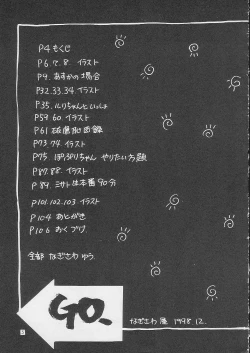 P4. もくじ
P6.7.8. イラスト
P9. あすかの場合
P32.33.34. イラスト
P35. ルリちゃんといっしょ
P59.60. イラスト
P61
P73.74. イラスト
P75 ぽぷりちゃん やりたい方題
P87.88. イラスト
P89. ミサト は本番90分
P101.102.103 イラスト
P104 あとがき
P106 おくづけ
全部 なぎさわ ゆう.
GO.
なぎさわ 1998.12.